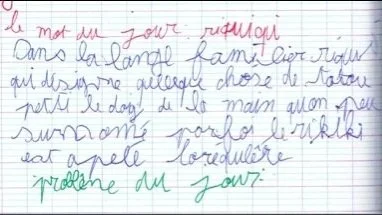 le mot du jour : riquiqui
Dans la langé familier riqui
qui designne quelque chose de tatou
petit le doig de la main quon peu
surnomé parfoi le rikiki
est apelé loréqulêre
problène du jour :